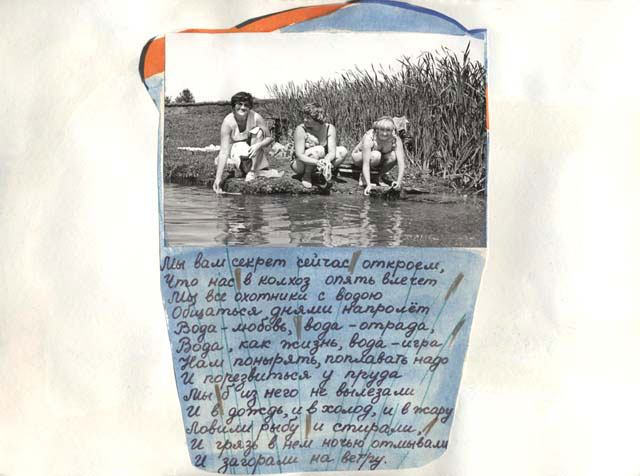 Мы вам секрет сейчас откроем,
Что нас в колхоз опять влечет
Мы все охотники с водою
Общаться днями напролёт
Вода-любовь, вода-отрада,
Вода, как жизнь, вода-игра
Нам понырять, поплавать надо
И порезвиться у пруда
Мы б из него не вылезали
И в дождь, и в холод, и в жару
Ловили рыбу и стирали,
И грязь в нем ночью отмывали
И загорали на ветру.